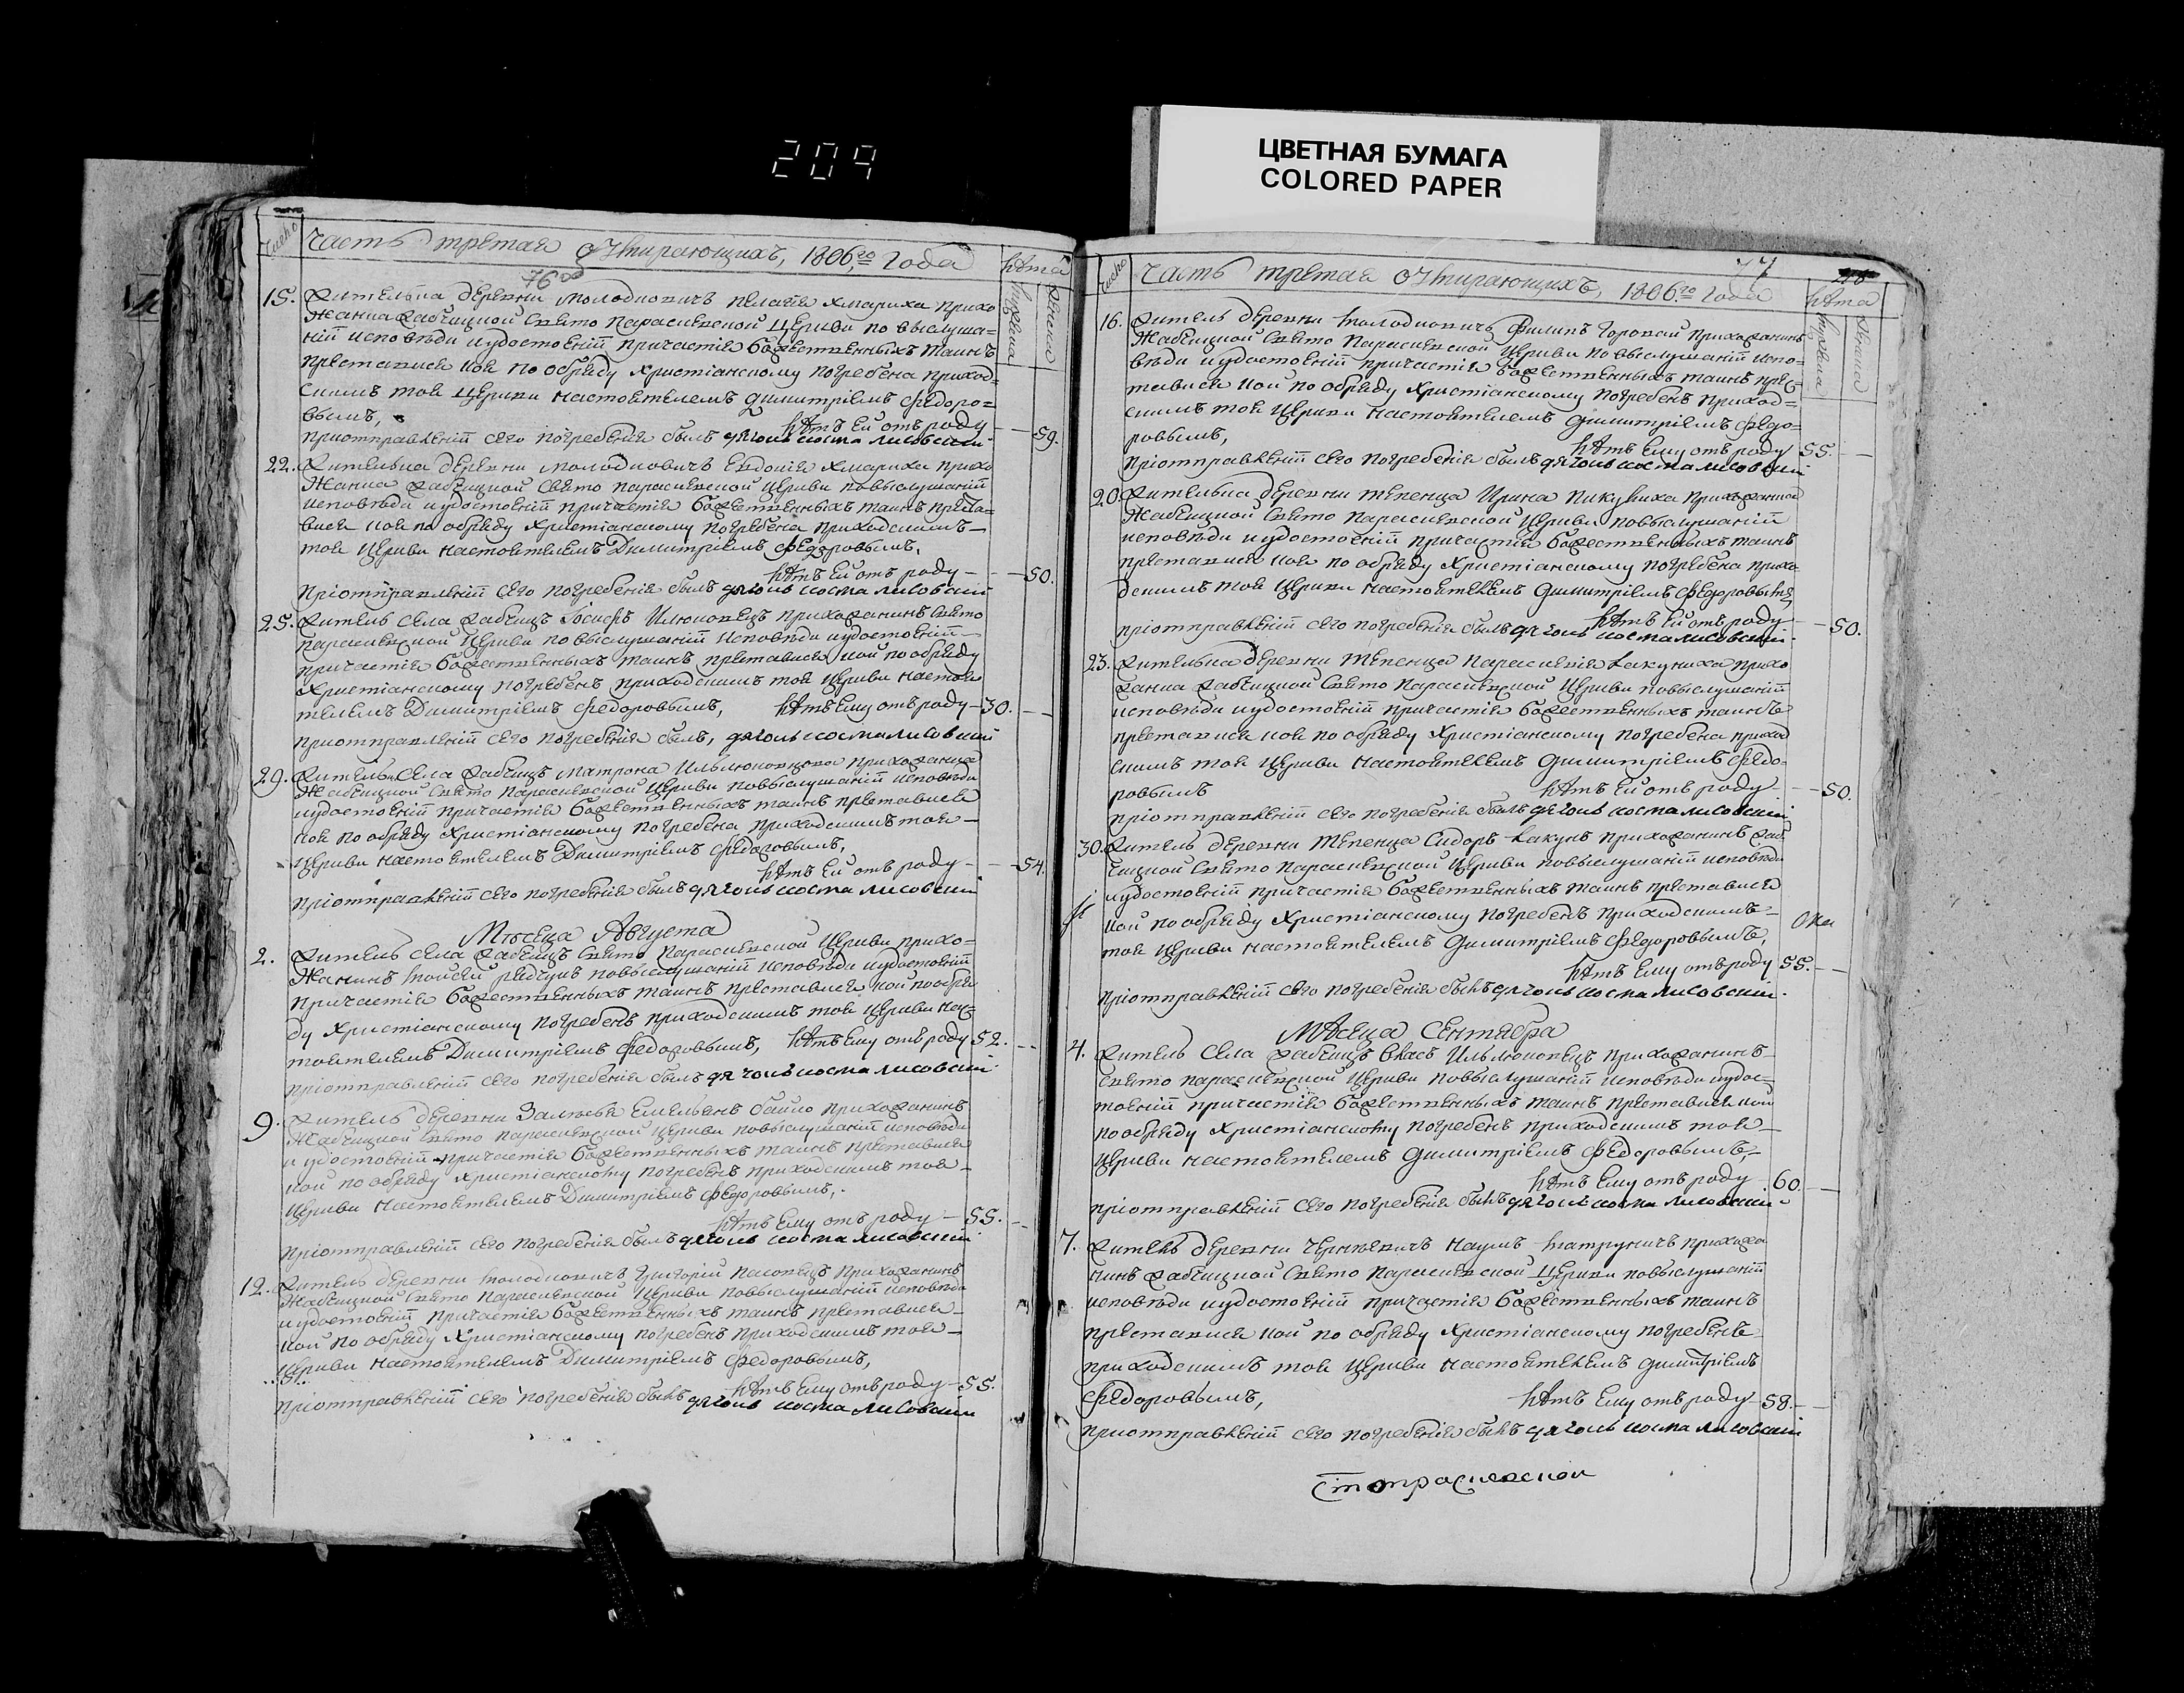 209
ЦВЕТНАЯ БУМАГА
COLORED PAPER
число
часть третая о Умирающихъ, 1806.го года
лѣта
76 об
мужеска
женска
15. Жителька деревни Молодковичъ Пелагея Хмариха прихо
жанка Жабчицкой Свято Параскевской Церкви по выслуша=
нïи исповѣди иудостоенïи причастiя божественныхъ таинъ
преставися коя по обряду христiанскому погребена приход=
скимъ тоя Церкви настоятелемъ Димитрiемъ Федоро=
вымъ,
лѣтъ ей отъ роду — 59.
приотправленïи сего погребенiя былъ дячокъ косма лисовскiй
22. Жителька деревни Молодковичъ Евдокiя Хмариха прихо
жанка Жабчицкой Свято Параскевской Церкви повыслушанïи
исповѣди иудостоенïи причастiя божественныхъ таинъ преста=
вися коя по обряду христiанскому погребена приходскимъ
тоя Церкви настоятелемъ Димитрiемъ Федоровымъ,
лѣтъ ей отъ роду — 50.
прiотправленïи сего погребенiя былъ дячокъ косма лисовскiй
25. Житель села Жабчицъ Iосифъ Илюковецъ прихожанинъ Свято
Параскевской Церкви повыслушанïи исповѣди иудостоенïи
причастiя божественныхъ таинъ преставися кой по обряду
христiанскому погребенъ приходскимъ тоя Церкви настоя
телемъ Димитрiемъ Федоровымъ, лѣтъ ему отъ роду — 30. —
приотправленïи сего погребенiя былъ, дячокъ косма лисовскiй
29. Жителька села Жабчицъ Матрона прихожанка
Жабчицкой Свято Параскевской Церкви повыслушанïи исповѣди
иудостоенïи причастiя божественныхъ таинъ преставися
коя по обряду христiанскому погребена приходскимъ тоя
Церкви настоятелемъ Димитрiемъ Федоровымъ,
лѣтъ ей отъ роду — 54.
прiотправленïи сего погребенiя былъ дячокъ косма лисовскiй
Мѣсяца Августа
2. Житель села Жабчицъ Свято Параскевской Церкви прихо=
жанинъ Моисей повыслушанïи исповѣди иудостоенïи
причастiя божественныхъ таинъ преставися кой пообря
ду христiанскому погребенъ приходскимъ тоя Церкви нас=
тоятелемъ Димитрiемъ Федоровымъ, лѣтъ ему отъ роду 52. —
прiотправленïи сего погребенiя былъ дячокъ косма лисовскiй
9. Житель деревни Залѣсья Емельянъ прихожанинъ
Жабчицкой Свято Параскевской Церкви повыслушанïи исповѣди
и удостоенïи причастiя божественныхъ таинъ преставися
кой по обряду христiанскому погребенъ приходскимъ тоя
Церкви настоятелемъ Димитрiемъ Федоровымъ,
лѣтъ ему отъ роду — 55. —
прiотправленïи сего погребенiя былъ дячокъ косма лисовскiй
12. Житель деревни Молодковичъ Григорiй прихожанинъ
Жабчицкой Свято Параскевской Церкви повыслушанïи исповѣди
и удостоенïи причастiя божественныхъ таинъ преставися
кой по обряду христiанскому погребенъ приходскимъ тоя
Церкви настоятелемъ Димитрiемъ Федоровымъ,
лѣтъ ему отъ роду — 55.
прiотправленïи сего погребенiя былъ дячокъ косма лисовскiй
число
часть третая о Умирающихъ, 1806.го года
77
лѣта
мужеска
женска
16. Житель деревни Молодковичъ Филипъ прихожанинъ
Жабчицкой Свято Параскевской Церкви повыслушанïи испо=
вѣди иудостоенïи причастiя божественныхъ таинъ прес=
тавися кой по обряду христiанскому погребенъ приход=
скимъ тоя Церкви настоятелемъ Димитрiемъ Федо=
ровымъ,
лѣтъ ему отъ роду 55. —
прiотправленïи сего погребенiя былъ дячокъ косма лисовскiй
20. Жителька деревни Тепенца Ирина прихожанка
Жабчицкой Свято Параскевской Церкви повыслушанïи
исповѣди иудостоенïи причастiя божественныхъ таинъ
преставися коя по обряду христiанскому погребена прихо
дскимъ тоя Церкви настоятелемъ Димитрiемъ Федоровымъ,
лѣтъ ей отъ роду — 50.
прiотправленïи сего погребенiя былъ дячокъ косма лисовскiй
23. Жителька деревни Тепенца Параскевiя Лакуниха прихо
жанка Жабчицкой Свято Параскевской Церкви повыслушанïи
исповѣди иудостоенïи причастiя божественныхъ таинъ
преставися коя по обряду христiанскому погребена приход
скимъ тоя Церкви настоятелемъ Димитрiемъ Федо=
ровымъ лѣтъ ей отъ роду — 50.
прiотправленïи сего погребенiя былъ дячокъ косма лисовскiй
30. Житель деревни Тепенца Сидоръ Лакунъ прихожанинъ Жаб
чицкой Свято Параскевской Церкви повыслушанïи исповѣди
иудостоенïи причастiя божественныхъ таинъ преставися
кой по обряду христiанскому погребенъ приходскимъ
тоя Церкви настоятелемъ Димитрiемъ Федоровымъ,
лѣтъ ему отъ роду 55. —
прiотправленïи сего погребенiя былъ дячокъ косма лисовскiй
Мѣсяца Сентября
4. Житель села Жабчицъ Власъ Ильлюковецъ прихожанинъ
Свято Параскевской Церкви повыслушанïи исповѣди иудос=
тоенïи причастiя божественныхъ таинъ преставися кой
пообряду христiанскому погребенъ приходскимъ тоя
Церкви настоятелемъ Димитрiемъ Федоровымъ,
лѣтъ ему отъ роду 60. —
прiотправленïи сего погребенiя былъ дячокъ косма лисовскiй
7. Житель деревни Чернѣевичъ Наумъ прихожа
нинъ Жабчицкой Свято Параскевской Церкви повыслушанïи
исповѣди иудостоенïи причастiя божественныхъ таинъ
преставися кой по обряду христiанскому погребенъ
приходскимъ тоя Церкви настоятелемъ Димитрiемъ
Федоровымъ, лѣтъ ему отъ роду — 58. —
приотправленïи сего погребенiя былъ дячокъ косма лисовскiй